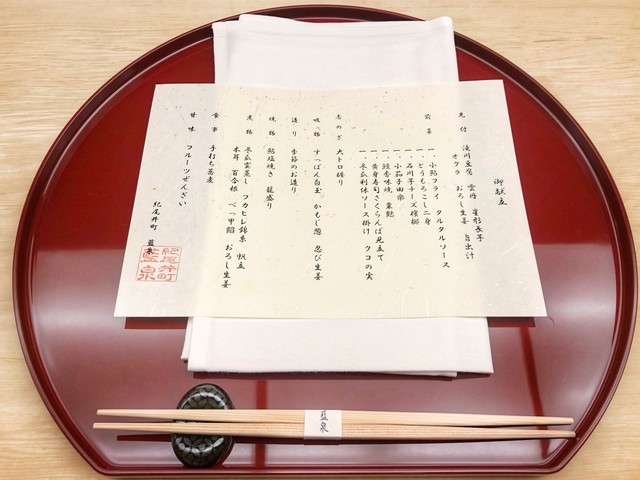 御献立
先付 滝川豆腐 雲丹 星形長芋
オクラ おろし生姜 旨出汁
前菜
一、小鮎フライ タルタルソース
一、とうもろこし二身
一、石川芋チーズ檳榔
一、小茄子田楽
一、鱧香味焼 粟麩
一、黄身寿司さくらんぼ見立て
一、冬瓜利休ソース掛け クコの実
志のぎ 大トロ握り
吸い物 すっぽん白玉 かもじ葱 忍び生姜
造り 季節のお造り
焼物 鮎塩焼き 籠盛り
煮物 冬瓜雲蒸し フカヒレ錦糸 帆立
木耳 百合根 べっ甲餡 おろし生姜
食事 手打ち蕎麦
甘味 フルーツぜんざい
紀尾井町 藍泉
紀尾井町
藍泉
藍泉